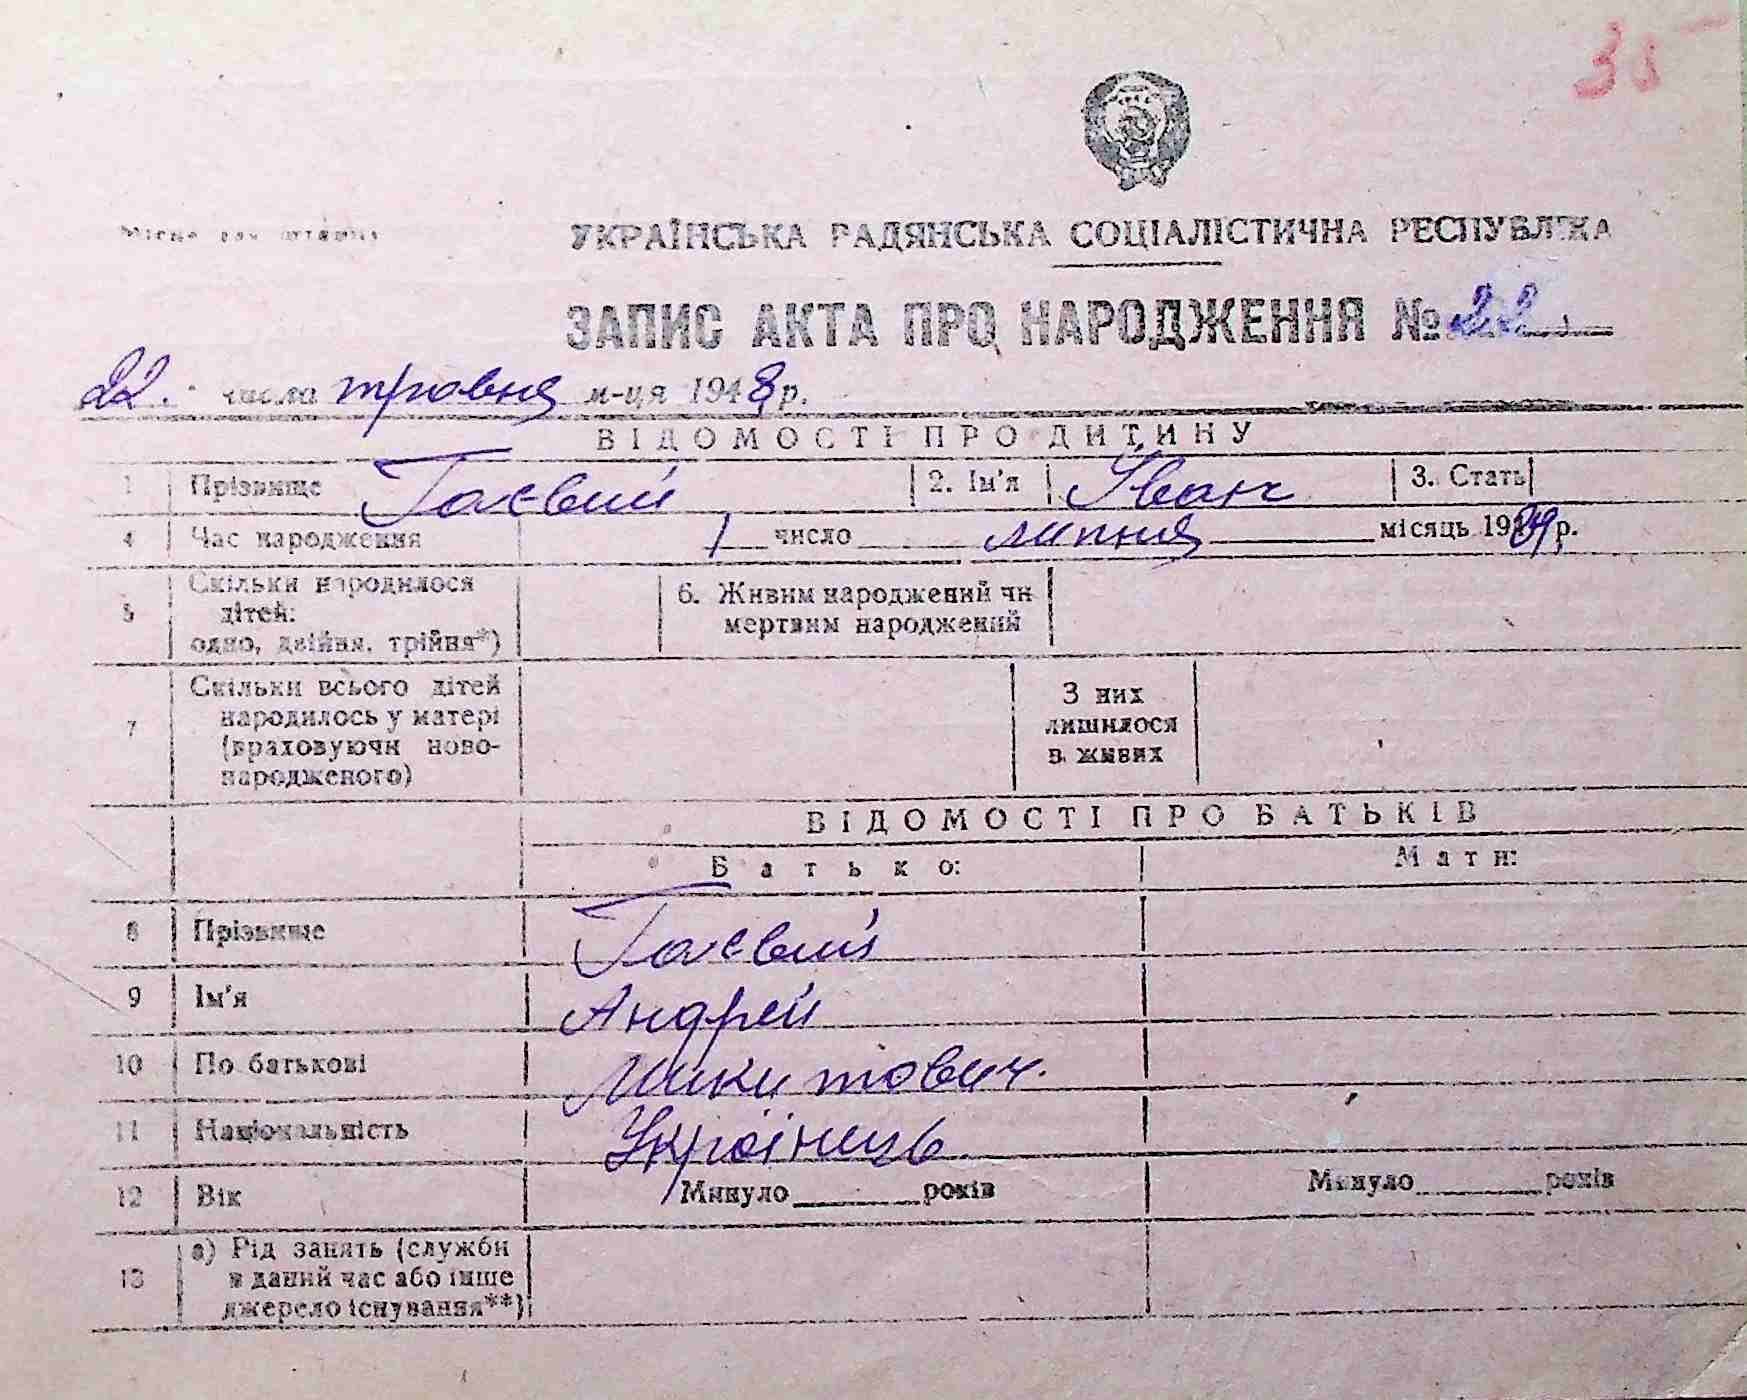 35
Місце для штампу
УКРАЇНСЬКА РАДЯНСЬКА СОЦІАЛІСТИЧНА РЕСПУБЛІКА
ЗАПИС АКТА ПРО НАРОДЖЕННЯ № 22
22. числа травня м-ця 1948 р.
ВІДОМОСТІ ПРО ДИТИНУ
1 Прізвище Гаєвий 2. Ім'я Іван 3. Стать
4 Час народження 1 число липня місяць 19 р.
5 Скільки народилося дітей: одно, двійня, трійня*) 6. Живим народжений чи мертвим народжений
7 Скільки всього дітей народилось у матері (враховуючи новонародженого) З них лишилося в живих
ВІДОМОСТІ ПРО БАТЬКІВ
Батько: Мати:
8 Прізвище Гаєвий
9 Ім'я Андрей
10 По батькові Микитович.
11 Національність Українець
12 Вік Минуло років Минуло років
13 а) Рід занять (служби в даний час або інше джерело існування**)